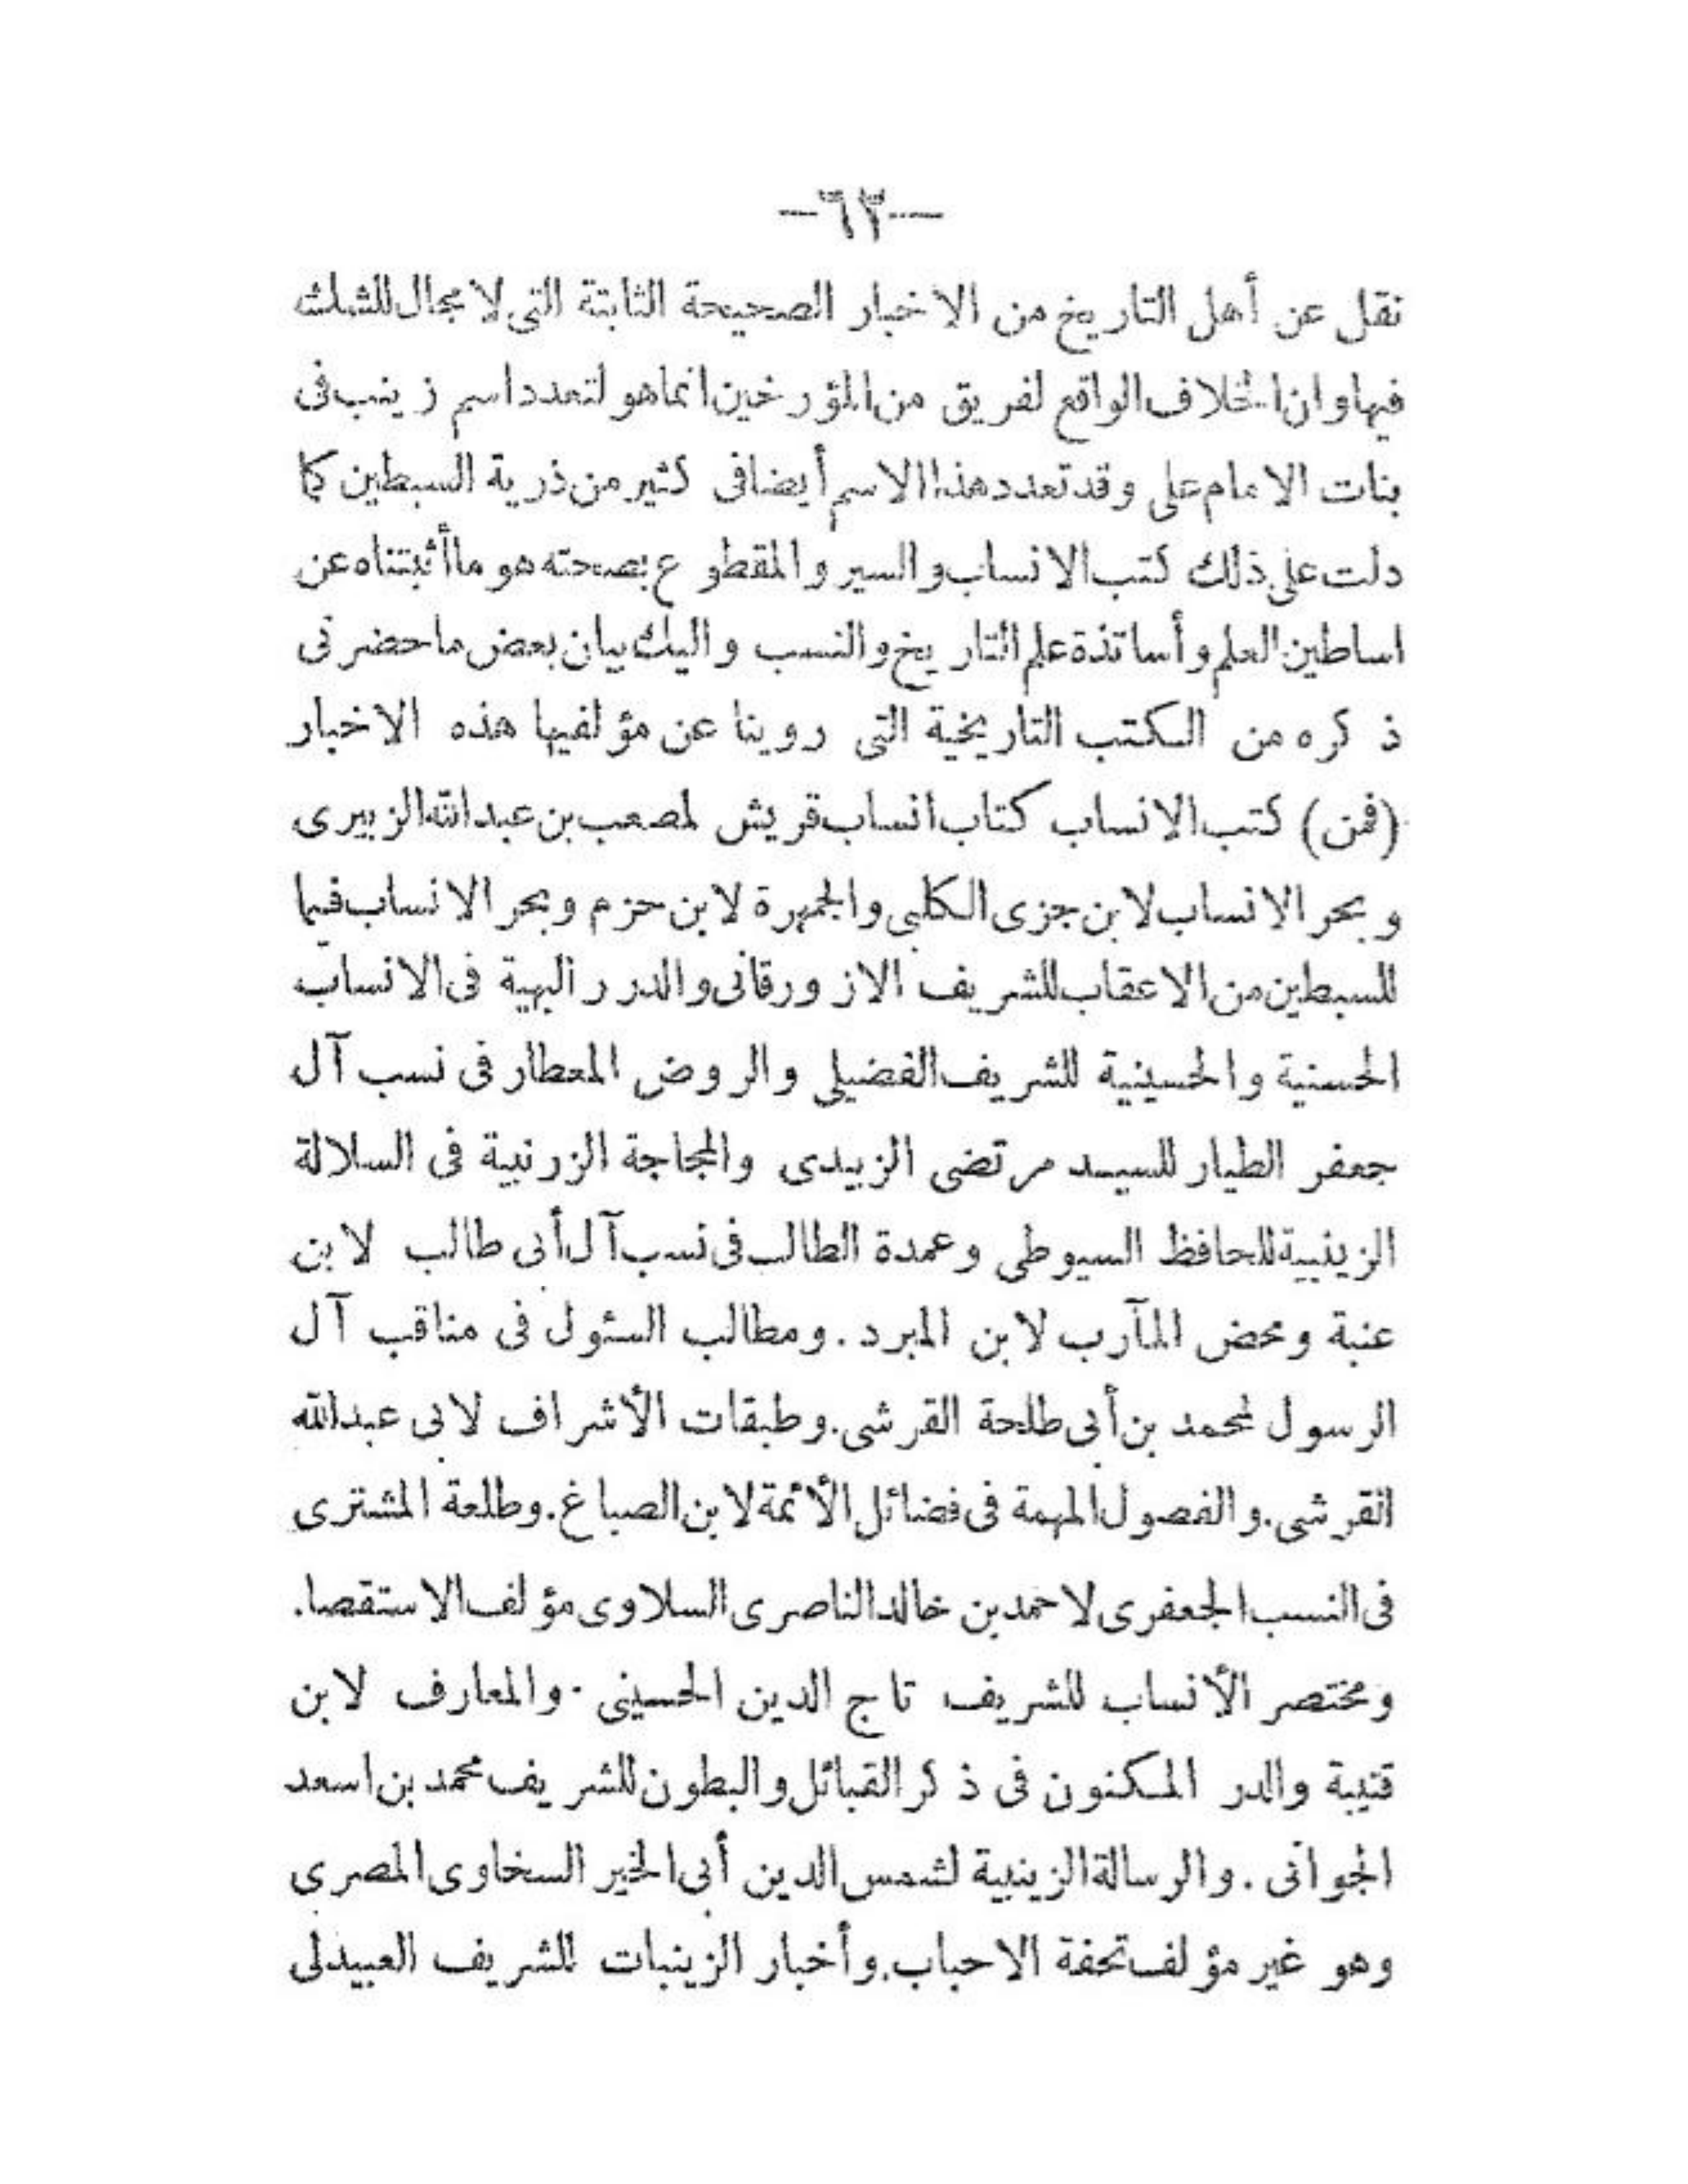 —٦٣—
نقل عن أهل التاريخ من الاخبار الصحيحة الثابتة التى لا مجال للشك
فيها وان الخلاف الواقع لفريق من المؤرخين انما هو لتعدد اسم زينب فى
بنات الامام على وقد تعدد هذا الاسم أيضا فى كثير من ذرية السبطين كما
دلت على ذلك كتب الانساب والسير والمقطوع بصحته هو ما أثبتناه عن
اساطين العلم وأساتذة علم التاريخ والنسب واليك بيان بعض ما حضر نى
ذكره من الكتب التاريخية التى روينا عن مؤلفيها هذه الاخبار
(فمن) كتب الانساب كتاب انساب قريش لمصعب بن عبدالله الزبيرى
وبحر الانساب لابن جزى الكلبى والجمهرة لابن حزم وبحر الانساب فيما
للسبطين من الاعقاب للشريف الازورقانى والدرر البهية فى الانساب
الحسنية والحسينية للشريف الفضيلى والروض المعطار فى نسب آل
جعفر الطيار للسيد مرتضى الزبيدى والمجاجة الزرنبية فى السلالة
الزينبية للحافظ السيوطى وعمدة الطالب فى نسب آل أبى طالب لابن
عنبة ومحض المآرب لابن المبرد . ومطالب السئول فى مناقب آل
الرسول لمحمد بن أبى طلحة القرشى. وطبقات الأشراف لابى عبدالله
القرشى. والفصول المهمة فى فضائل الأئمة لابن الصباغ. وطلعة المشترى
فى النسب الجعفرى لاحمد بن خالد الناصرى السلاوى مؤلف الاستقصا.
ومختصر الأنساب للشريف تاج الدين الحسينى . والمعارف لابن
قتيبة والدر المكنون فى ذكر القبائل والبطون للشريف محمد بن اسعد
الجوانى . والرسالة الزينبية لشمس الدين أبى الخير السخاوى المصرى
وهو غير مؤلف تحفة الاحباب. وأخبار الزينبات للشريف العبيدلى